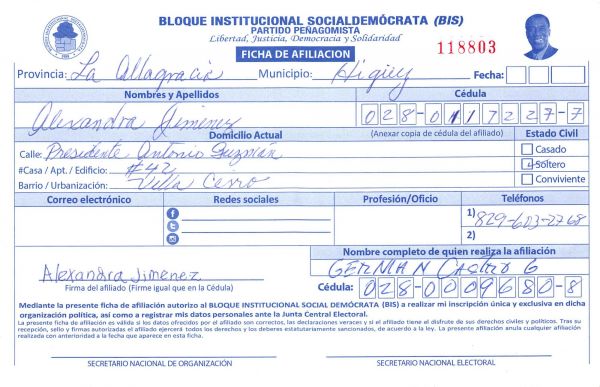 BLOQUE INSTITUCIONAL SOCIALDEMÓCRATA (BIS)
PARTIDO PEÑAGOMISTA
Libertad, Justicia, Democracia y Solidaridad
FICHA DE AFILIACION
118803
Provincia: La Altagracia Municipio: Higüey Fecha:
Nombres y Apellidos Cédula
Alexandra Jimenez 028-0117227-7
Domicilio Actual (Anexar copia de cédula del afiliado) Estado Civil
Calle: Presidente Antonio Guzmán Casado
#Casa / Apt. / Edificio: #42 Soltero
Barrio / Urbanización: Villa Cerro Conviviente
Correo electrónico Redes sociales Profesión/Oficio Teléfonos
1) 829-603-2768
2)
Nombre completo de quien realiza la afiliación
GERMAN Castro G
Alexandra Jimenez
Firma del afiliado (Firme igual que en la Cédula) Cédula: 028-0009680-8
Mediante la presente ficha de afiliación autorizo al BLOQUE INSTITUCIONAL SOCIAL DEMÓCRATA (BIS) a realizar mi inscripción única y exclusiva en dicha
organización política, así como a registrar mis datos personales ante la Junta Central Electoral.
La presente ficha de afiliación es valida si los datos ofrecidos por el afiliado son correctos, las declaraciones veraces y si el afiliado tiene el disfrute de sus derechos civiles y políticos. Tras su
recepción, sello y firmas autorizadas el afiliado ejercerá todos los derechos y los deberes estatutariamente sancionados, de acuerdo a la ley. La presente afiliación anula cualquier afiliación
realizada con anterioridad a la fecha que aparece en esta ficha.
SECRETARIO NACIONAL DE ORGANIZACIÓN SECRETARIO NACIONAL ELECTORAL